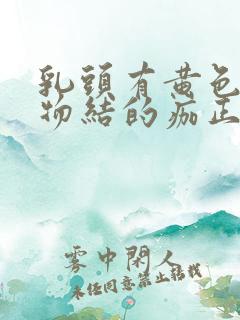 乳頭有黃色
物結的痂正
霧中閑人
未任同意禁止轉載